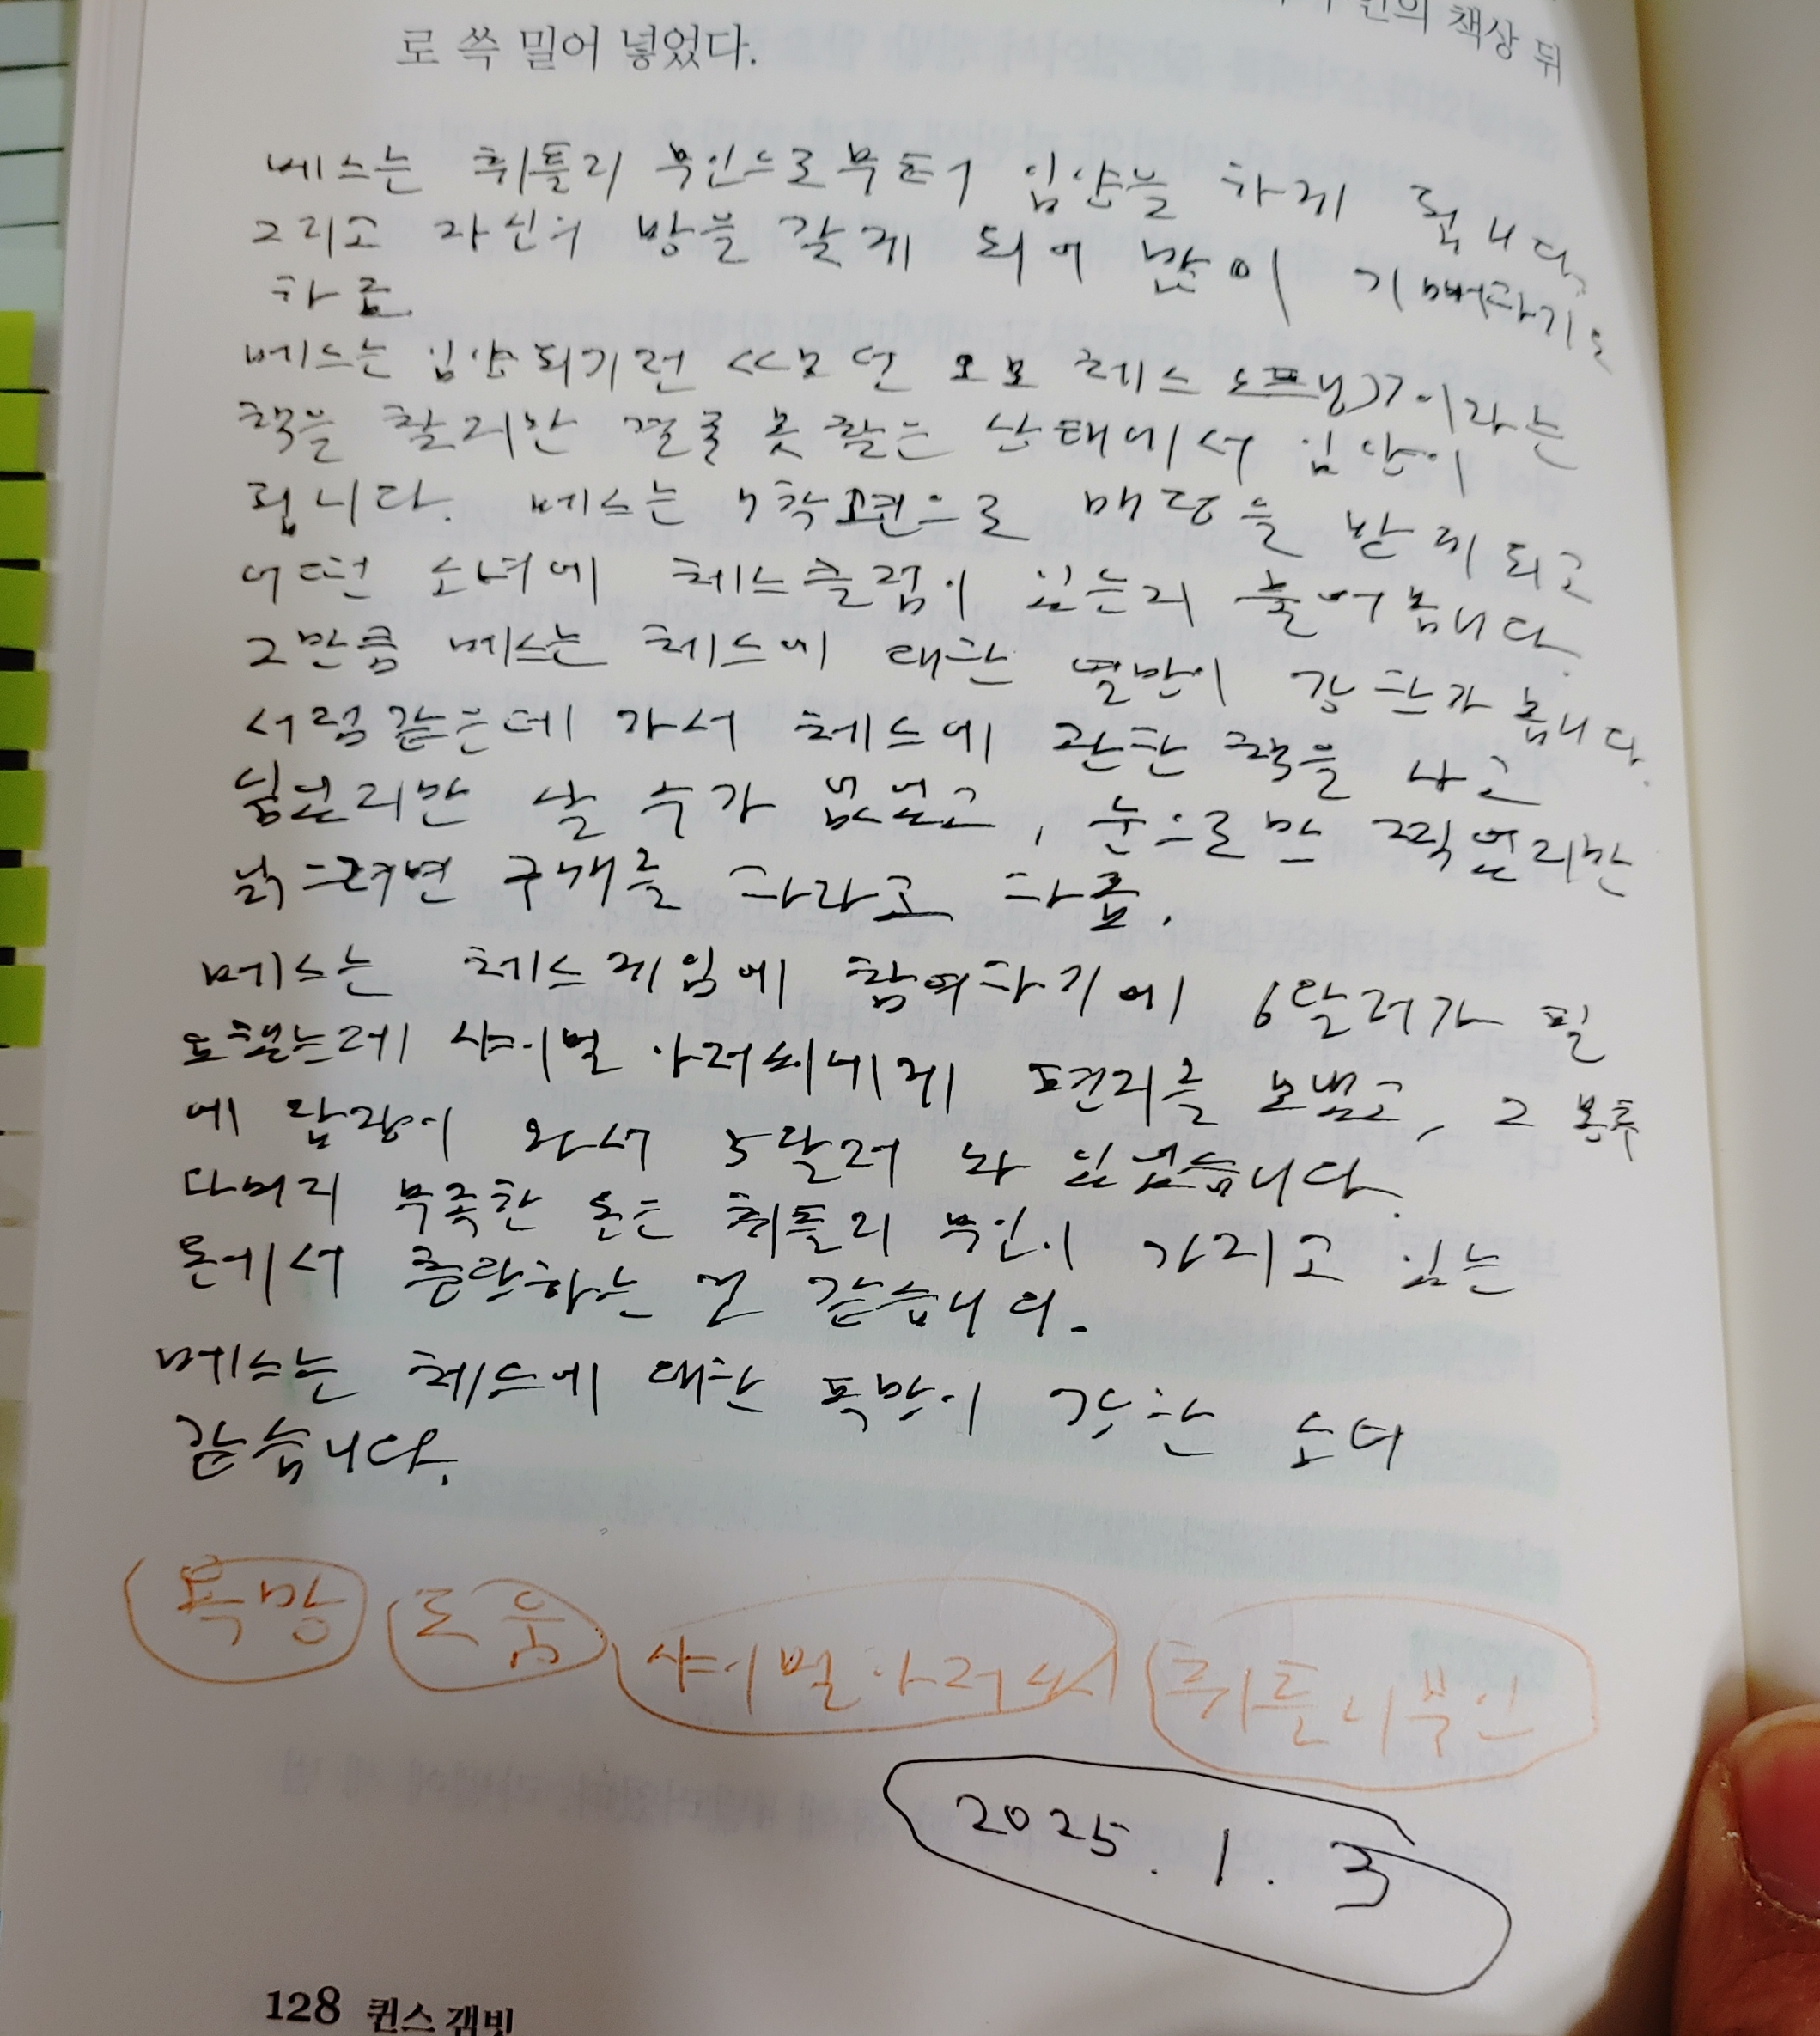 퀸의 책상 뒤
로 쓱 밀어 넣었다.
베스는 휘틀리 부인으로부터 입양을 하게 됩니다.
그리고 자신의 방을 갖게 되어 많이 기뻐하기도
하죠.
베스는 입양되기전 <<모던 오프 체스 오프닝>>이라는
책을 찾지만 결국 못 찾은 상태에서 입양이
됩니다. 베스는 1착편으로 배당을 받게 되고
어떤 소녀에 체스클럽이 있는지 물어봅니다.
그만큼 베스는 체스에 대한 열망이 강한가 봅니다.
서점같은데 가서 체스에 관한 책을 사고
싶었지만 살 수가 없었고, 눈으로만 찍었지만
읽으려면 구매를 하라고 하죠.
베스는 체스게임에 참여하기에 6달러가 필
요했는데 샤이벌 아저씨에게 편지를 보냈고, 그 봉투
에 답장이 와서 5달러 와 있었습니다.
나머지 부족한 돈은 휘틀리 부인이 가지고 있는
돈에서 충당하는 것 같습니다.
베스는 체스에 대한 욕망이 강한 소녀
같습니다.
욕망 도움 샤이벌아저씨 휘틀리부인
2025. 1. 3
128 퀸스 갬빗